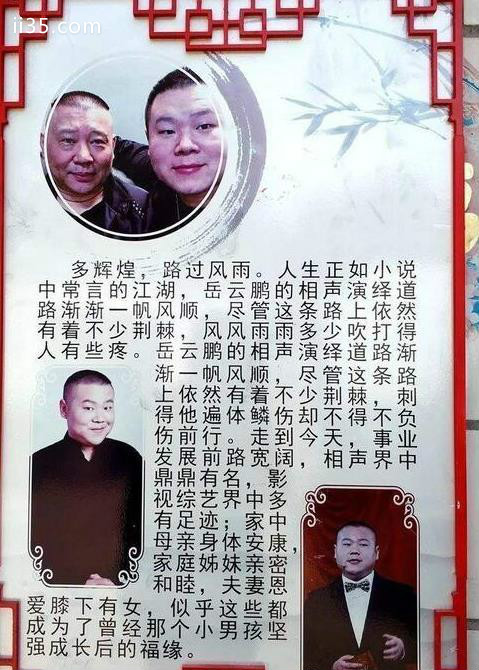 ii35.com
多辉煌，路过风雨。人生正如小说
中常言的江湖，岳云鹏的相声演绎道
路渐渐一帆风顺，尽管这条路上依然
有着不少荆棘，风风雨雨多少吹打得
人有些疼。岳云鹏的相声演绎道路渐
渐一帆风顺，尽管这条路
上依然有着不少荆棘，刺
得他遍体鳞伤却不得不负
伤前行。走到今天，事业
发展前路宽阔，相声界中
鼎鼎有名，影
视综艺界中多
有足迹；家中
母亲身体安康，
家庭姊妹亲密
和睦，夫妻恩
爱膝下有女，似乎这些都
成为了曾经那个小男孩坚
强成长后的福缘。
ii35.com